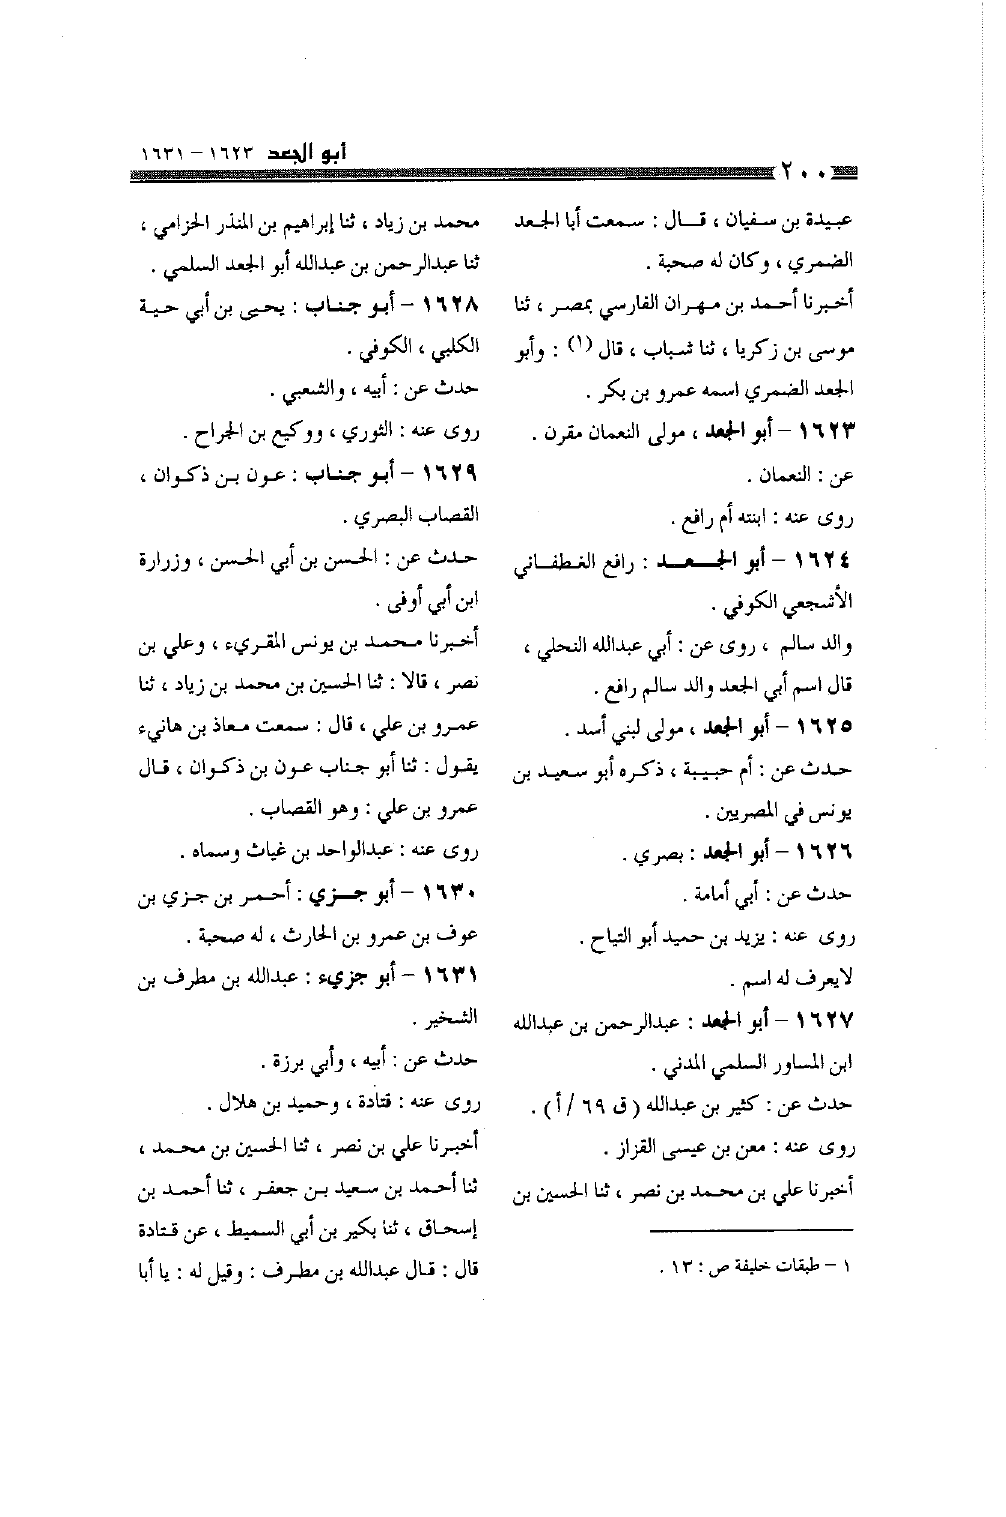 أبو الجعد ١٦٢٣ - ١٦٣١
٢٠٠
عبيدة بن سفيان ، قال : سمعت أبا الجعد
الضمري ، وكان له صحبة .
أخبرنا أحمد بن مهران الفارسي بمصر ، ثنا
موسى بن زكريا ، ثنا شباب ، قال (١) : وأبو
الجعد الضمري اسمه عمرو بن بكر .
١٦٢٣ - أبو الجعد ، مولى النعمان مقرن .
عن : النعمان .
روى عنه : ابنته أم رافع .
١٦٢٤ - أبو الجعد : رافع الغطفاني
الأشجعي الكوفي .
والد سالم ، روى عن : أبي عبدالله النحلي ،
قال اسم أبي الجعد والد سالم رافع .
١٦٢٥ - أبو الجعد ، مولى لبني أسد .
حدث عن : أم حبيبة ، ذكره أبو سعيد بن
يونس في المصريين .
١٦٢٦ - أبو الجعد : بصري .
حدث عن : أبي أمامة .
روى عنه : يزيد بن حميد أبو التياح .
لايعرف له اسم .
١٦٢٧ - أبو الجعد : عبدالرحمن بن عبدالله
ابن المساور السلمي المدني .
حدث عن : كثير بن عبدالله ( ق ٦٩ / أ ) .
روى عنه : معن بن عيسى القزاز .
أخبرنا علي بن محمد بن نصر ، ثنا الحسين بن
١ - طبقات خليفة ص : ١٣ .
محمد بن زياد ، ثنا إبراهيم بن المنذر الحزامي ،
ثنا عبدالرحمن بن عبدالله أبو الجعد السلمي .
١٦٢٨ - أبو جناب : يحيى بن أبي حية
الكلبي ، الكوفي .
حدث عن : أبيه ، والشعبي .
روى عنه : الثوري ، ووكيع بن الجراح .
١٦٢٩ - أبو جناب : عون بن ذكوان ،
القصاب البصري .
حدث عن : الحسن بن أبي الحسن ، وزرارة
ابن أبي أوفى .
أخبرنا محمد بن يونس المقريء ، وعلي بن
نصر ، قالا : ثنا الحسين بن محمد بن زياد ، ثنا
عمرو بن علي ، قال : سمعت معاذ بن هانيء
يقول : ثنا أبو جناب عون بن ذكوان ، قال
عمرو بن علي : وهو القصاب .
روى عنه : عبدالواحد بن غياث وسماه .
١٦٣٠ - أبو جزي : أحمر بن جزي بن
عوف بن عمرو بن الحارث ، له صحبة .
١٦٣١ - أبو جزيء : عبدالله بن مطرف بن
الشخير .
حدث عن : أبيه ، وأبي برزة .
روى عنه : قتادة ، وحميد بن هلال .
أخبرنا علي بن نصر ، ثنا الحسين بن محمد ،
ثنا أحمد بن سعيد بن جعفر ، ثنا أحمد بن
إسحاق ، ثنا بكير بن أبي السميط ، عن قتادة
قال : قال عبدالله بن مطرف : وقيل له : يا أبا